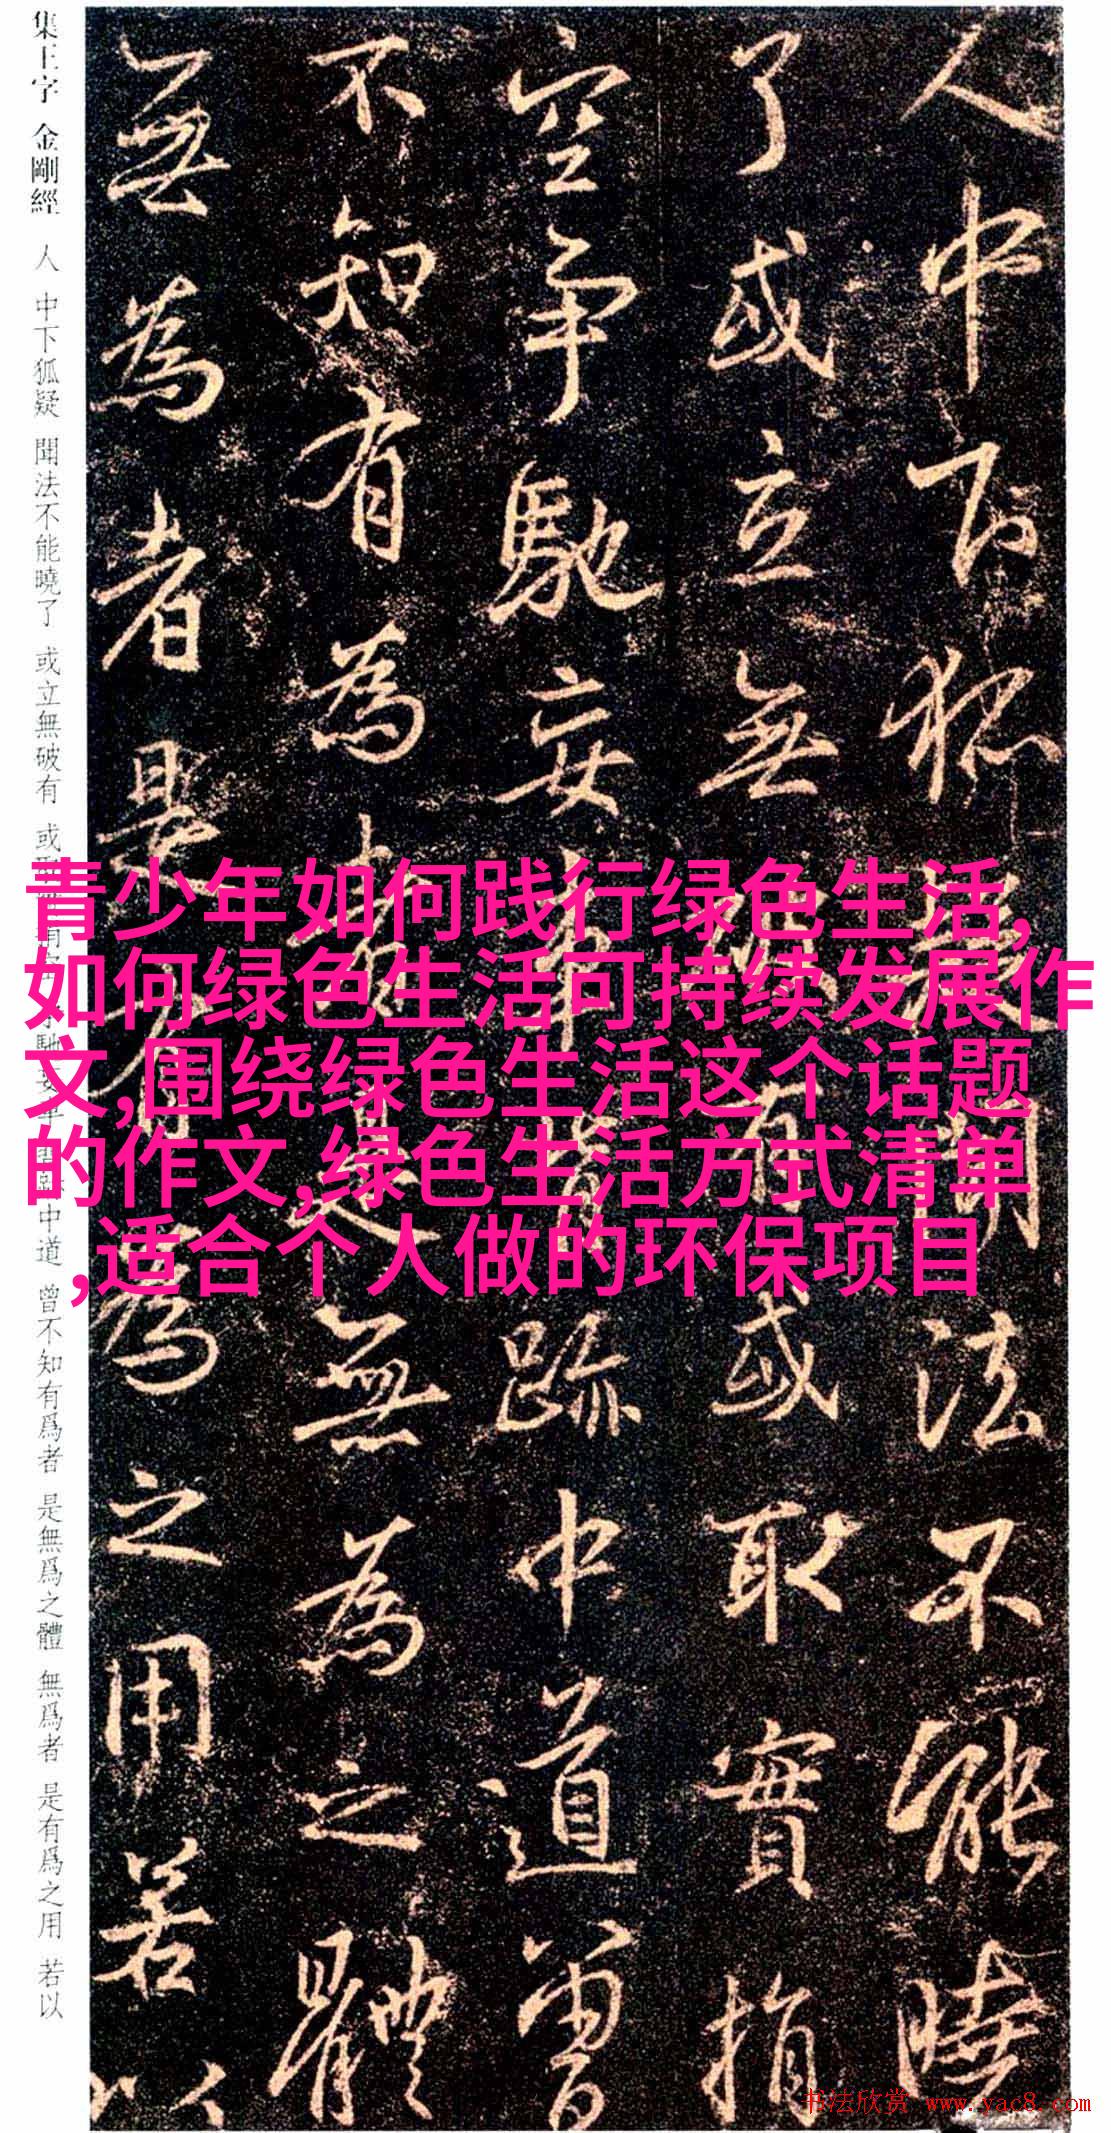 人中下狐疑聞法不能曉
了或立無破有或取實捐
空爭馳妄跡中道曾
不知有為者是無為之體
無為者是有為之用若以
集王字 金剛經 人 中下狐疑 聞法不能曉了 或立無破有 或 中道 曾不知有爲者 是無爲之體 無爲者 是有爲之用 若以
青少年如何践行绿色生活,
如何绿色生活可持续发展作
文,围绕绿色生活这个话题
的作文,绿色生活方式清单
,适合个人做的环保项目
书法欣赏 www.yac8.com